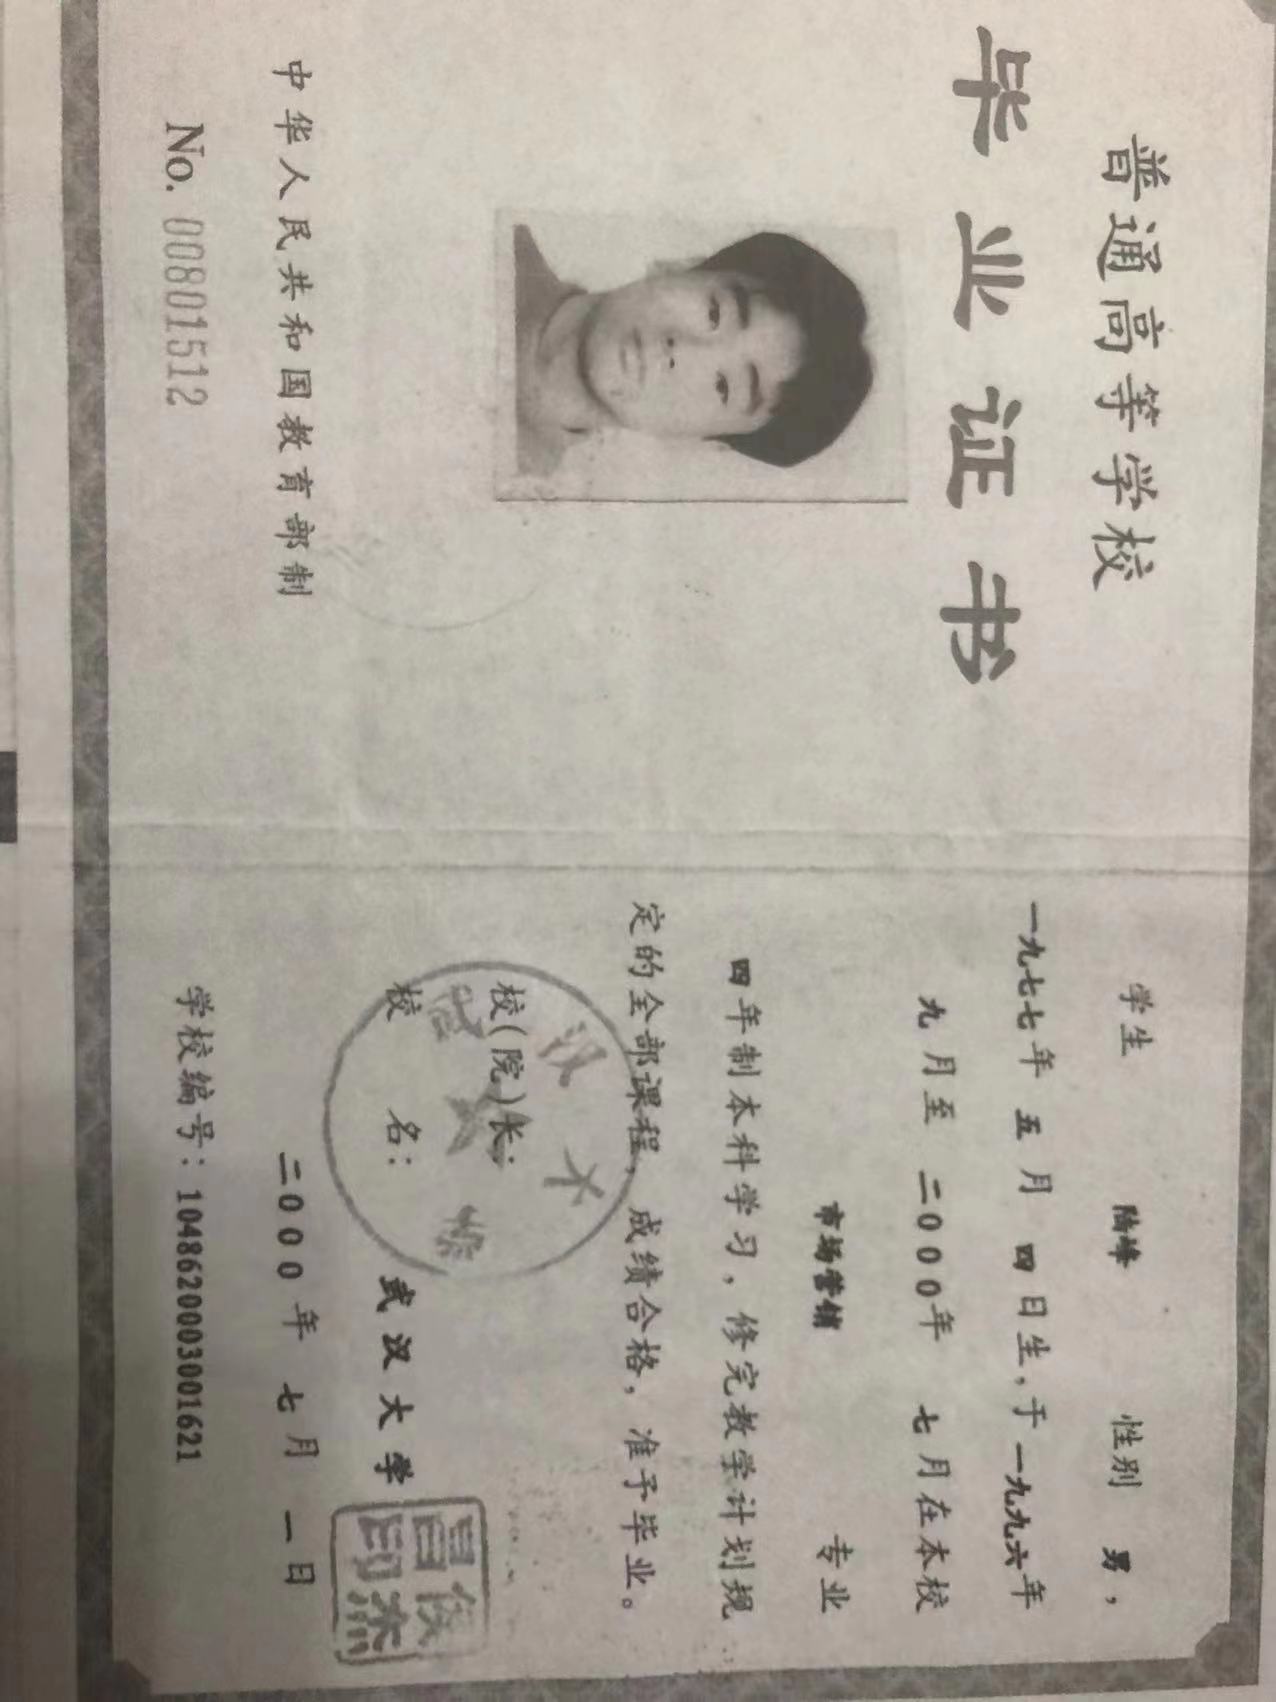 普通高等学校
毕业证书
中华人民共和国教育部制
No. 00801512
学生 陆峰 性别 男，
一九七七年 五 月 四 日生，于一九九六年
九 月至 二000年 七 月在本校
市场营销 专业
四年制本科学习，修完教学计划规
定的全部课程，成绩合格，准予毕业。
校(院)长：
校 名： 武汉大学
二000年 七 月 一 日
学校编号：104862000300162​1
武汉大学
侯杰昌印